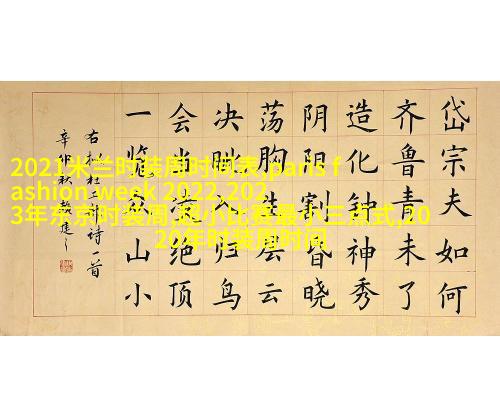 岱宗夫如何
齐鲁青未了
造化钟神秀
阴阳割昏晓
荡胸生层云
决眦入归鸟
会当凌绝顶
一览众山小
诗一首
辛卯秋
2021米兰时装周时间表,paris f
ashion week 2022,202
3年东京时装周,超小比赛最小三点式,20
20年时装周时间